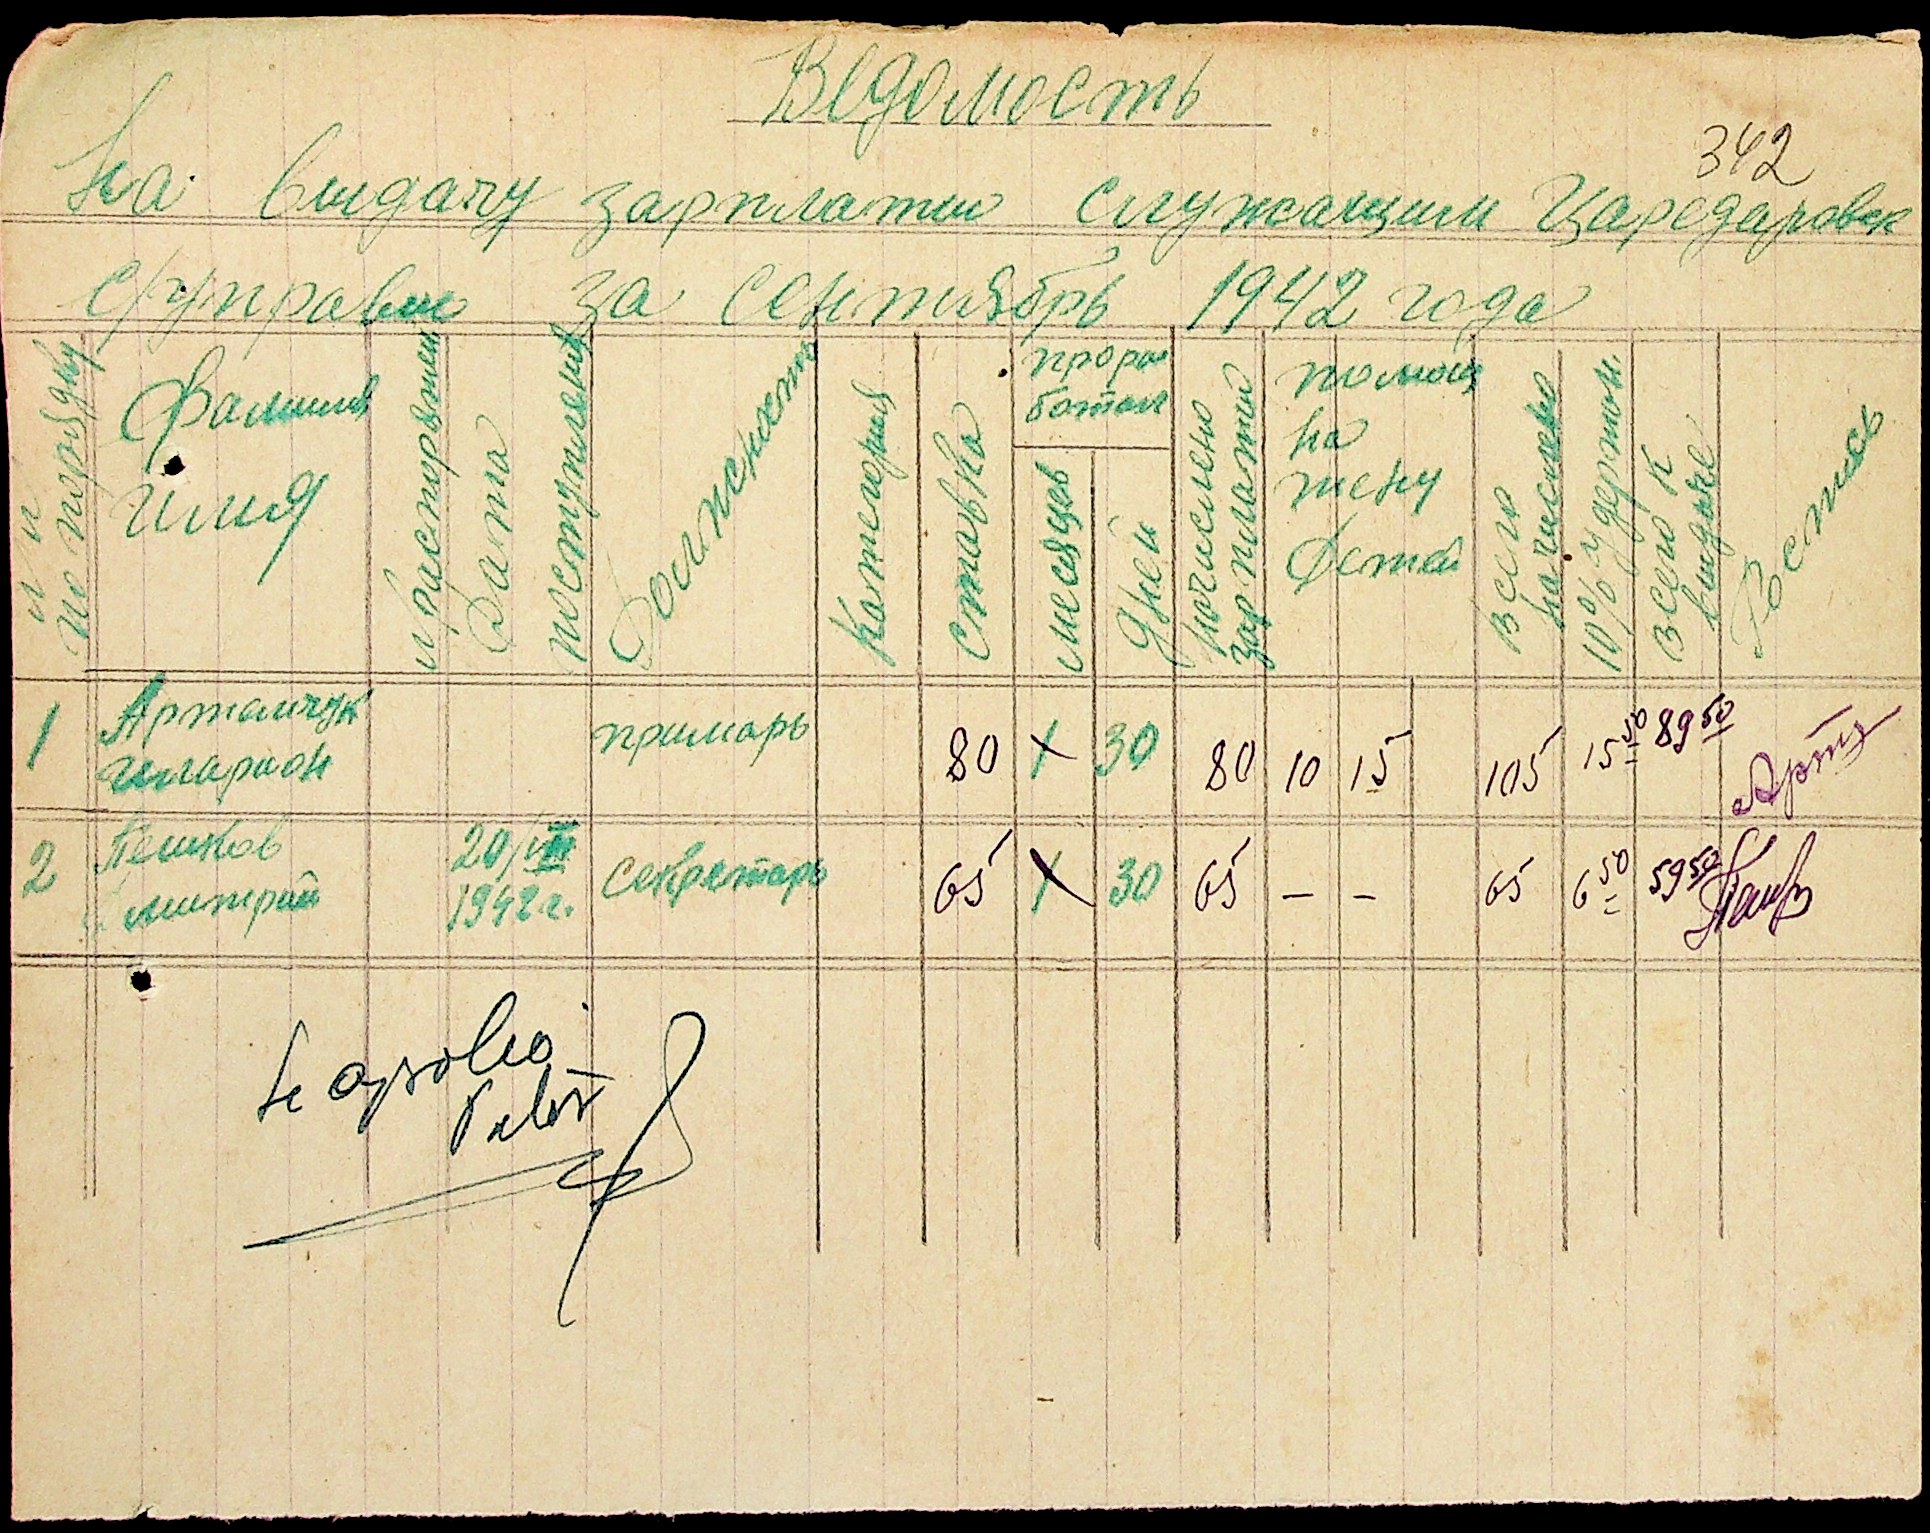 Ведомость
342
На выдачу зарплаты служащим Цареdаровск
с/управы за сентябрь 1942 года
№ № по порядку
Фамилия имя
№ распоряжен
Дата поступления
Должность
Категория
ставка
прора ботал
месяцев
дней
начислено зарплаты
помощ на жену детей
всего начислено
10% удержан.
всего к выдаче
Роспись
1 Артамчук Иларион примарь 80 1 30 80 10 15 105 15 50 89 50 Арт
2 Пешков Дмитрий 20/VIII 1942 г. секретарь 65 1 30 65 — — 65 6 50 59 50